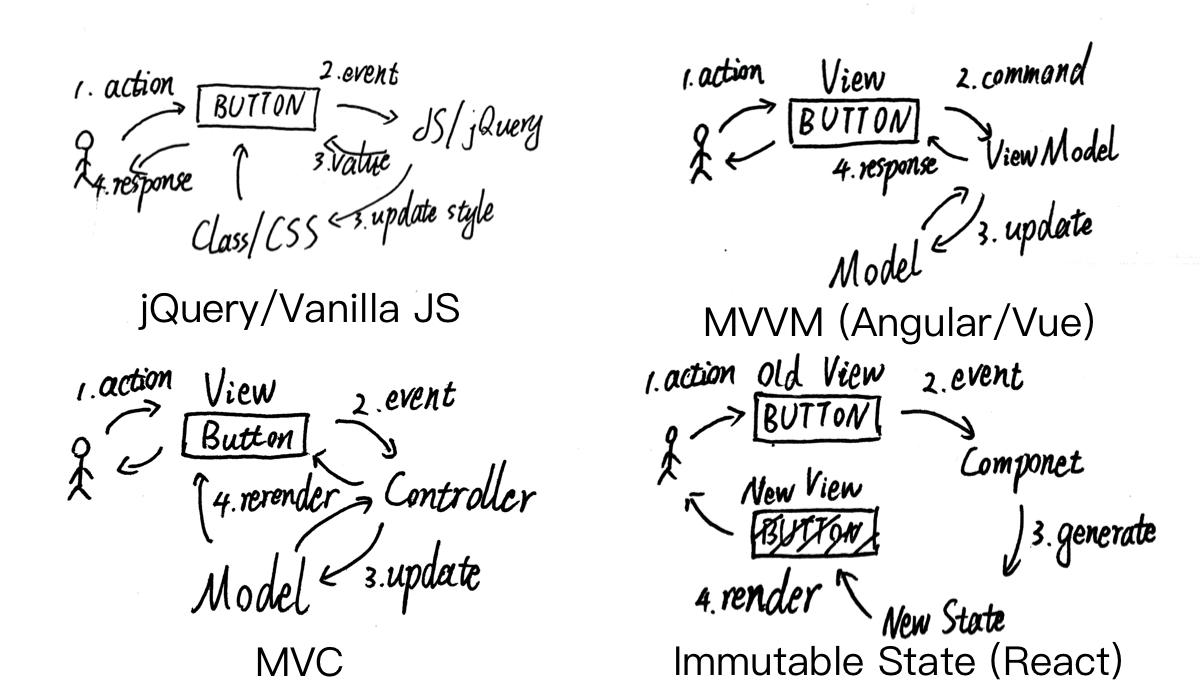 1. action
2.event
BUTTON
JS/jQuery
3.value
4.response
3.update style
Class/CSS
jQuery/Vanilla JS
1.action
View
2.command
BUTTON
ViewModel
4.response
3.update
Model
MVVM (Angular/Vue)
1.action
View
2.event
Button
4.rerender
Controller
Model
3.update
MVC
1.action
Old View
2.event
BUTTON
Componet
New View
BUTTON
3.generate
4.render
New State
Immutable State (React)